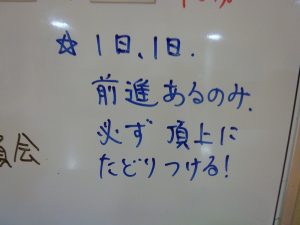 ☆ 1日、1日.
前進あるのみ.
必ず頂上に
たどりつける!
員会